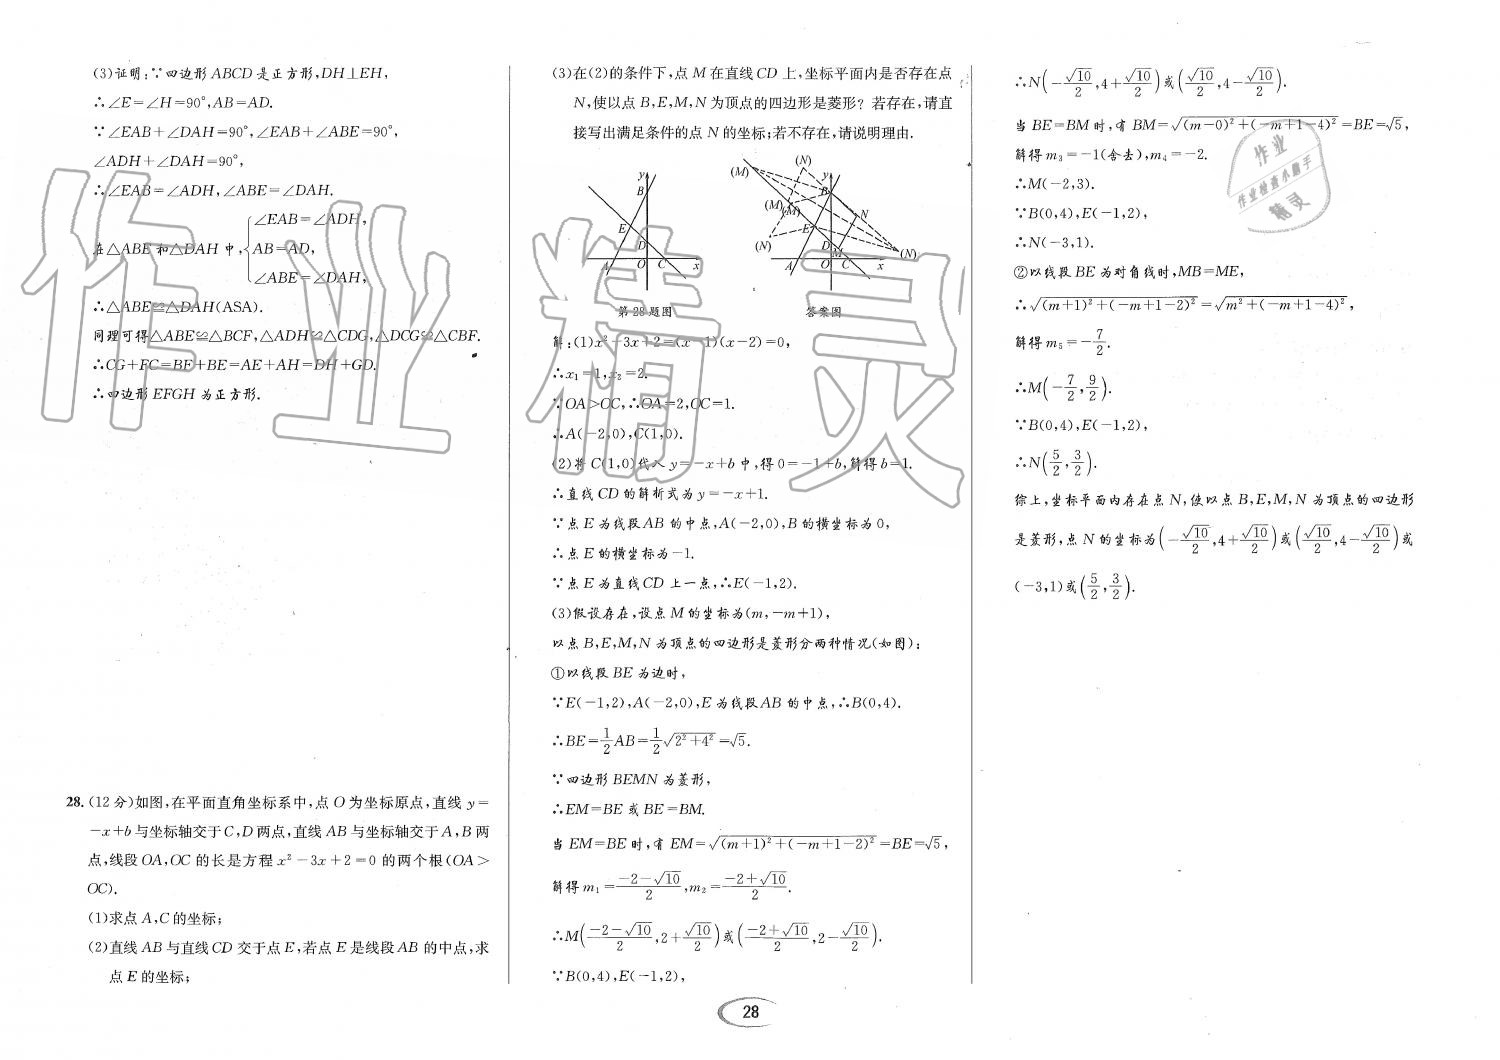 (3)证明:∵四边形 ABCD 是正方形,DH⊥EH,
∴∠E=∠H=90°,AB=AD.
∵∠EAB+∠DAH=90°,∠EAB+∠ABE=90°,
∠ADH+∠DAH=90°,
∴∠EAB=∠ADH,∠ABE=∠DAH.
在△ABE 和△DAH 中,{∠EAB=∠ADH,
AB=AD,
∠ABE=∠DAH,
∴△ABE≌△DAH(ASA).
同理可得△ABE≌△BCF,△ADH≌△CDG,△DCG≌△CBF.
∴CG+FC=BF+BE=AE+AH=DH+GD.
∴四边形 EFGH 为正方形.
28.(12分)如图,在平面直角坐标系中,点 O 为坐标原点,直线 y=
-x+b 与坐标轴交于 C,D 两点,直线 AB 与坐标轴交于 A,B 两
点,线段 OA,OC 的长是方程 x²-3x+2=0 的两个根(OA>
OC).
(1)求点 A,C 的坐标;
(2)直线 AB 与直线 CD 交于点 E,若点 E 是线段 AB 的中点,求
点 E 的坐标;
(3)在(2)的条件下,点 M 在直线 CD 上,坐标平面内是否存在点
N,使以点 B,E,M,N 为顶点的四边形是菱形?若存在,请直
接写出满足条件的点 N 的坐标;若不存在,请说明理由.
y
B
E
D
A
O
C
x
第28题图
(N)
(M)
y
B
(M)
(M)
N
E
(N)
D
M
(N)
A
O
C
x
答案图
解:(1)x²-3x+2=(x-1)(x-2)=0,
∴x₁=1,x₂=2.
∵OA>OC,∴OA=2,OC=1.
∴A(-2,0),C(1,0).
(2)将 C(1,0)代入 y=-x+b 中,得 0=-1+b,解得 b=1.
∴直线 CD 的解析式为 y=-x+1.
∵点 E 为线段 AB 的中点,A(-2,0),B 的横坐标为 0,
∴点 E 的横坐标为-1.
∵点 E 为直线 CD 上一点,∴E(-1,2).
(3)假设存在,设点 M 的坐标为(m,-m+1),
以点 B,E,M,N 为顶点的四边形是菱形分两种情况(如图):
①以线段 BE 为边时,
∵E(-1,2),A(-2,0),E 为线段 AB 的中点,∴B(0,4).
∴BE=1/2 AB=1/2 √(2²+4²)=√5.
∵四边形 BEMN 为菱形,
∴EM=BE 或 BE=BM.
当 EM=BE 时,有 EM=√((m+1)²+(-m+1-2)²)=BE=√5,
解得 m₁=(-2-√10)/2,m₂=(-2+√10)/2.
∴M((-2-√10)/2,2+√10/2)或((-2+√10)/2,2-√10/2).
∵B(0,4),E(-1,2),
∴N(-√10/2,4+√10/2)或(√10/2,4-√10/2).
当 BE=BM 时,有 BM=√((m-0)²+(-m+1-4)²)=BE=√5,
解得 m₃=-1(舍去),m₄=-2.
∴M(-2,3).
∵B(0,4),E(-1,2),
∴N(-3,1).
②以线段 BE 为对角线时,MB=ME,
∴√((m+1)²+(-m+1-2)²)=√(m²+(-m+1-4)²),
解得 m₅=-7/2.
∴M(-7/2,9/2).
∵B(0,4),E(-1,2),
∴N(5/2,3/2).
综上,坐标平面内存在点 N,使以点 B,E,M,N 为顶点的四边形
是菱形,点 N 的坐标为(-√10/2,4+√10/2)或(√10/2,4-√10/2)或
(-3,1)或(5/2,3/2).
28
作业精灵
作业
作业检查小助手
精灵